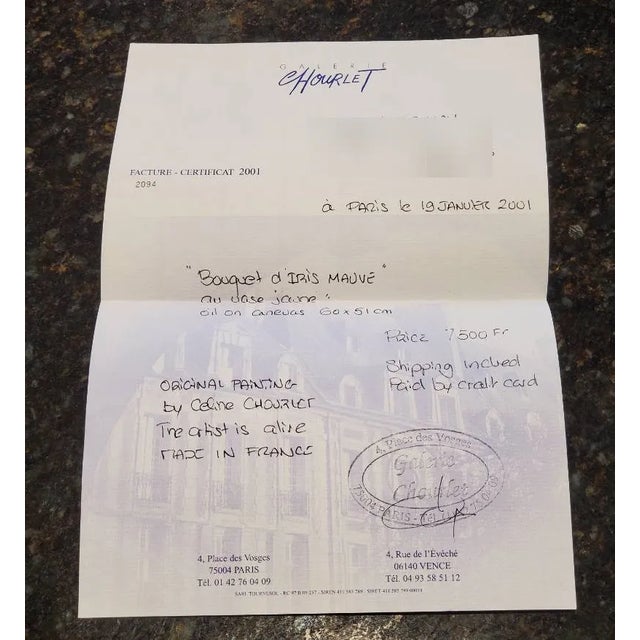 GALERIE
CHOURLET
FACTURE - CERTIFICAT 2001
2094
à PARIS le 19 JANVIER 2001
"Bouquet d'IRIS MAUVE"
au vase jaune"
oil on canevas 60 x 51 cm
PRICE 7500 Fr
Shipping Inclued
Paid by credit card
ORIGINAL PAINTING
by Céline CHOURLET
The artist is alive
MADE IN FRANCE
4, Place des Vosges
Galerie
Chourlet
75004 PARIS - Tél.
4, Place des Vosges
75004 PARIS
Tél. 01 42 76 04 09
4, Rue de l'Évêché
06140 VENCE
Tél. 04 93 58 51 12